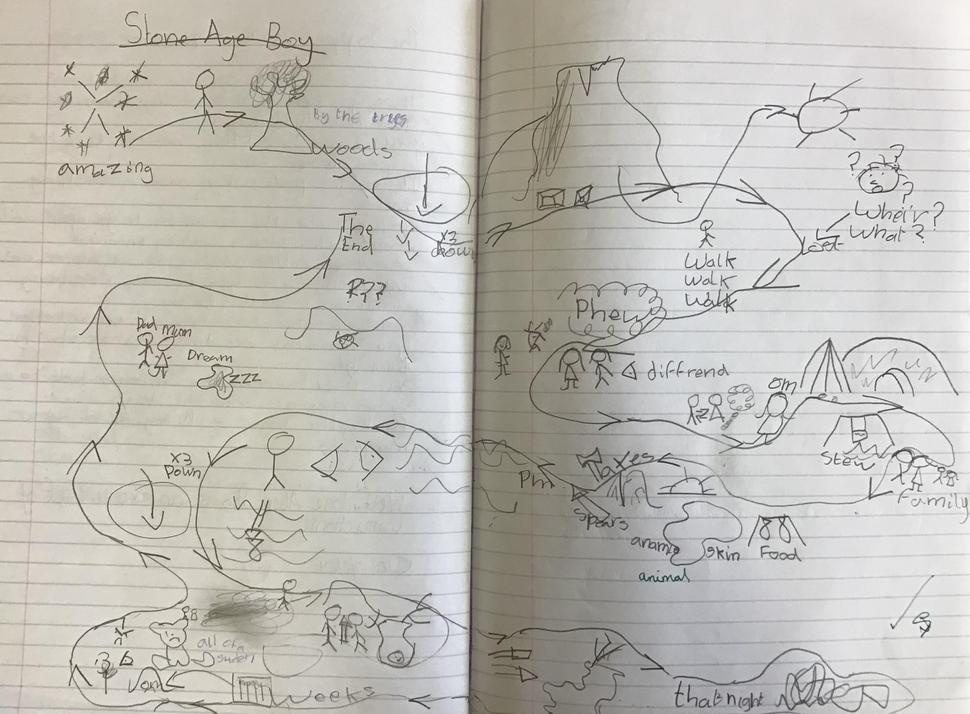 Stone Age Boy
amazing
by the trees
woods
x3
down
The
End
R??
Dad mum
Dream
zzz
x3
Down
all of a
suden
weeks
? ? ?
Whair?
What?
Lost
Walk
Walk
Walk
Phew
diffrend
om
Stew
Family
Axes
Spears
anamal
skin
Food
animal
that night